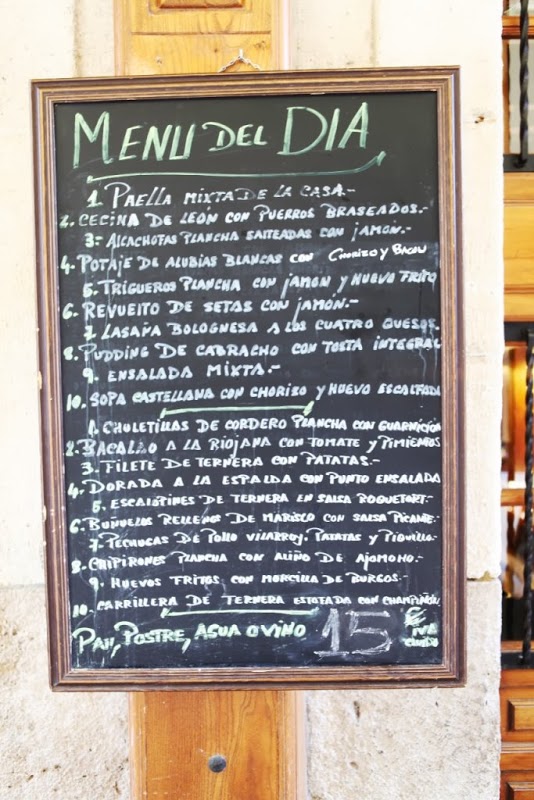 MENU DEL DIA
1. PAELLA MIXTA DE LA CASA.-
2. CECINA DE LEÓN CON PUERROS BRASEADOS.-
3.- ALCACHOFAS PLANCHA SALTEADAS CON JAMÓN.-
4. POTAJE DE ALUBIAS BLANCAS CON CHORIZO Y BACON
5. TRIGUEROS PLANCHA CON JAMON Y HUEVO FRITO
6. REVUELTO DE SETAS CON JAMÓN.-
7. LASAÑA BOLOGNESA A LOS CUATRO QUESOS.
8. PUDDING DE CABRACHO CON TOSTA INTEGRAL
9. ENSALADA MIXTA.-
10. SOPA CASTELLANA CON CHORIZO Y HUEVO ESCALFADO
1. CHULETILLAS DE CORDERO PLANCHA CON GUARNICIÓN
2. BACALAO A LA RIOJANA CON TOMATE Y PIMIENTOS
3. FILETE DE TERNERA CON PATATAS.-
4. DORADA A LA ESPALDA CON PUNTO ENSALADA
5. ESCALOPINES DE TERNERA EN SALSA ROQUEFORT.-
6. BUÑUELOS RELLENOS DE MARISCO CON SALSA PICANTE.
7. PECHUGAS DE POLLO VILLARROY. PATATAS Y PIQUILLO.-
8. CHIPIRONES PLANCHA CON ALIÑO DE AJOMOHO.-
9.- HUEVOS FRITOS CON MORCILLA DE BURGOS-
10.- CARRILLERA DE TERNERA ESTOFADA CON CHAMPIÑÓN
PAN, POSTRE, AGUA O VINO 15 € IVA